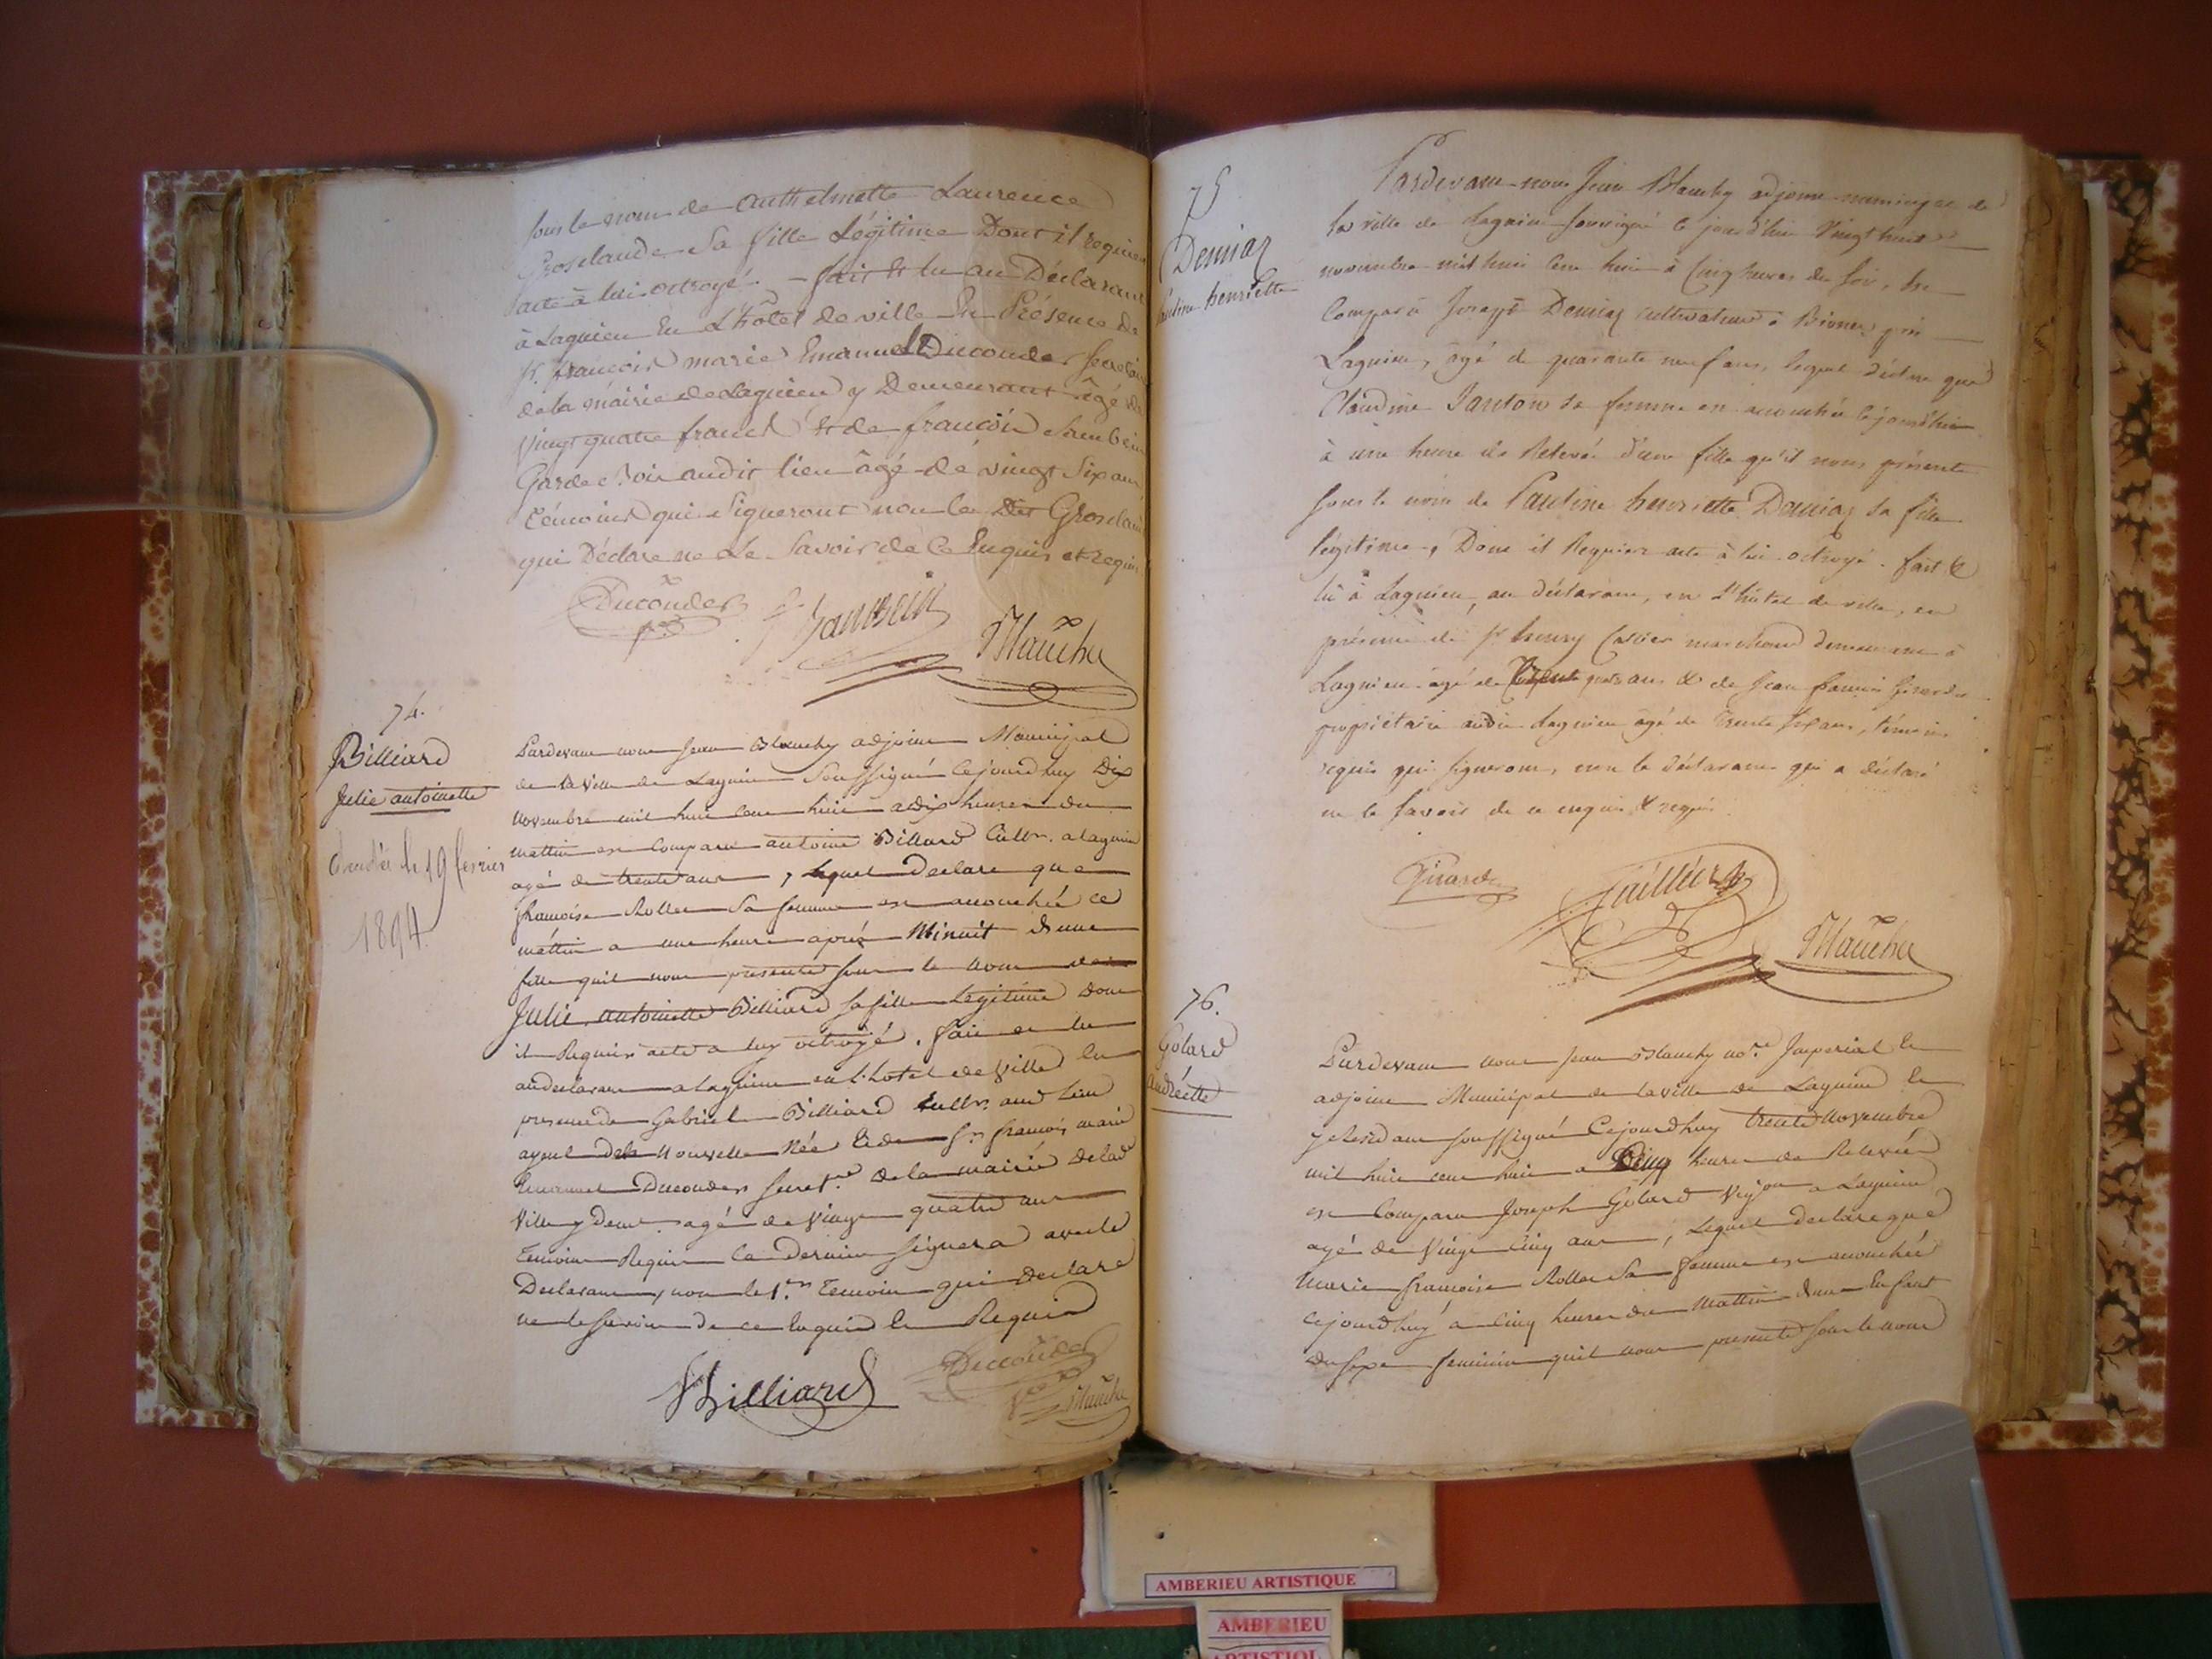 sous le nom de anthelmette Laurence
Groslaude sa fille Légitime Dont il requier
acte à lui octroyé. fait & lu au Déclarant
à Lagnieu En L'hôtel de ville En Présence de
Sr. françois marie Emanuel Ducouder Secretaire
de la mairie de Lagnieu y Demeurant âgé de
vingt quatre & de françois
Garde Bois audit lieu âgé de vingt Six ans
témoins qui Signeront non le Dit
qui Déclare ne Le Savoir de Ce Enquis et requis
Ducouder
Blanchy
74.
Billiard
Julie antoinette
le 19 fevrier
1894
Pardevant nous Jean Blanchy adjoint Municipal
de la ville de Lagnieu Soussigné Cejourdhuy Dix
Novembre mil huit cent huit a dix heures du
mattin est Comparu antoine Billiard Cultr. a Lagnieu
agé de trente ans, lequel Declare que
françoise Rollet Sa femme est accouchée ce
mattin a une heure aprés Minuit d'une
fille quil nous presente sous le nom de
Julie antoinette Billiard sa fille Legitime dont
il Requier acte a luy octroyé. fait et lu
au declarant a Lagnieu en l'hotel de Ville En
presence de Gabriel Billiard Cultr. aud. lieu
ayeul de la Nouvelle Née & de Sr. françois marie
Emanuel Ducouder secretre. de la mairie de lad.
Ville y demt. agé de Vingt quatre ans
Temoins Requis Le Dernier Signera avec le
Declarant, non le 1er. Temoin qui Declare
ne le savoir de ce Enquis En Requis
Billiard
Ducouder
Blanchy
75
Demiaz
Pauline henriette
Pardevant nous Jean Blanchy adjoint municipal de
la ville de Lagnieu soussigné ce jourd'hui Vingt huit
novembre mil huit Cent huit à Cinq heures du soir, Est
Comparu Joseph Demiaz Cultivateur à près
Lagnieu, âgé de quarante neuf ans, lequel déclare que
Claudine Janton sa femme est accouchée cejourd'hui
à une heure de Relevée d'une fille qu'il nous présente
sous le nom de Pauline henriette Demiaz sa fille
légitime, Dont il Requier acte à lui octroyé. fait &
lu à Lagnieu, au déclarant, en l'hôtel de ville, en
présence de Sr henry marchand demeurant à
Lagnieu âgé de ans & de Jean françois Girard
propriétaire audit Lagnieu âgé de Trente Six ans, témoins
requis qui signeront, non le déclarant qui a déclaré
ne le savoir de ce enquis & requis.
Girard
Blanchy
76.
Golard
andréette
Pardevant nous Jean Blanchy nore. Imperial En
adjoint Municipal de la ville de Lagnieu En
y Residant soussigné Cejourdhuy trente Novembre
mil huit cent huit a Cinq heures de Relevée
est Comparu Joseph Golard a Lagnieu
agé de Vingt Cinq ans, Lequel declare que
Marie françoise Rollet Sa femme est accouchée
Cejourdhuy à Cinq heures du Mattin d'une Enfant
du sexe feminin quil nous presente sous le nom
AMBERIEU ARTISTIQUE
AMBERIEU